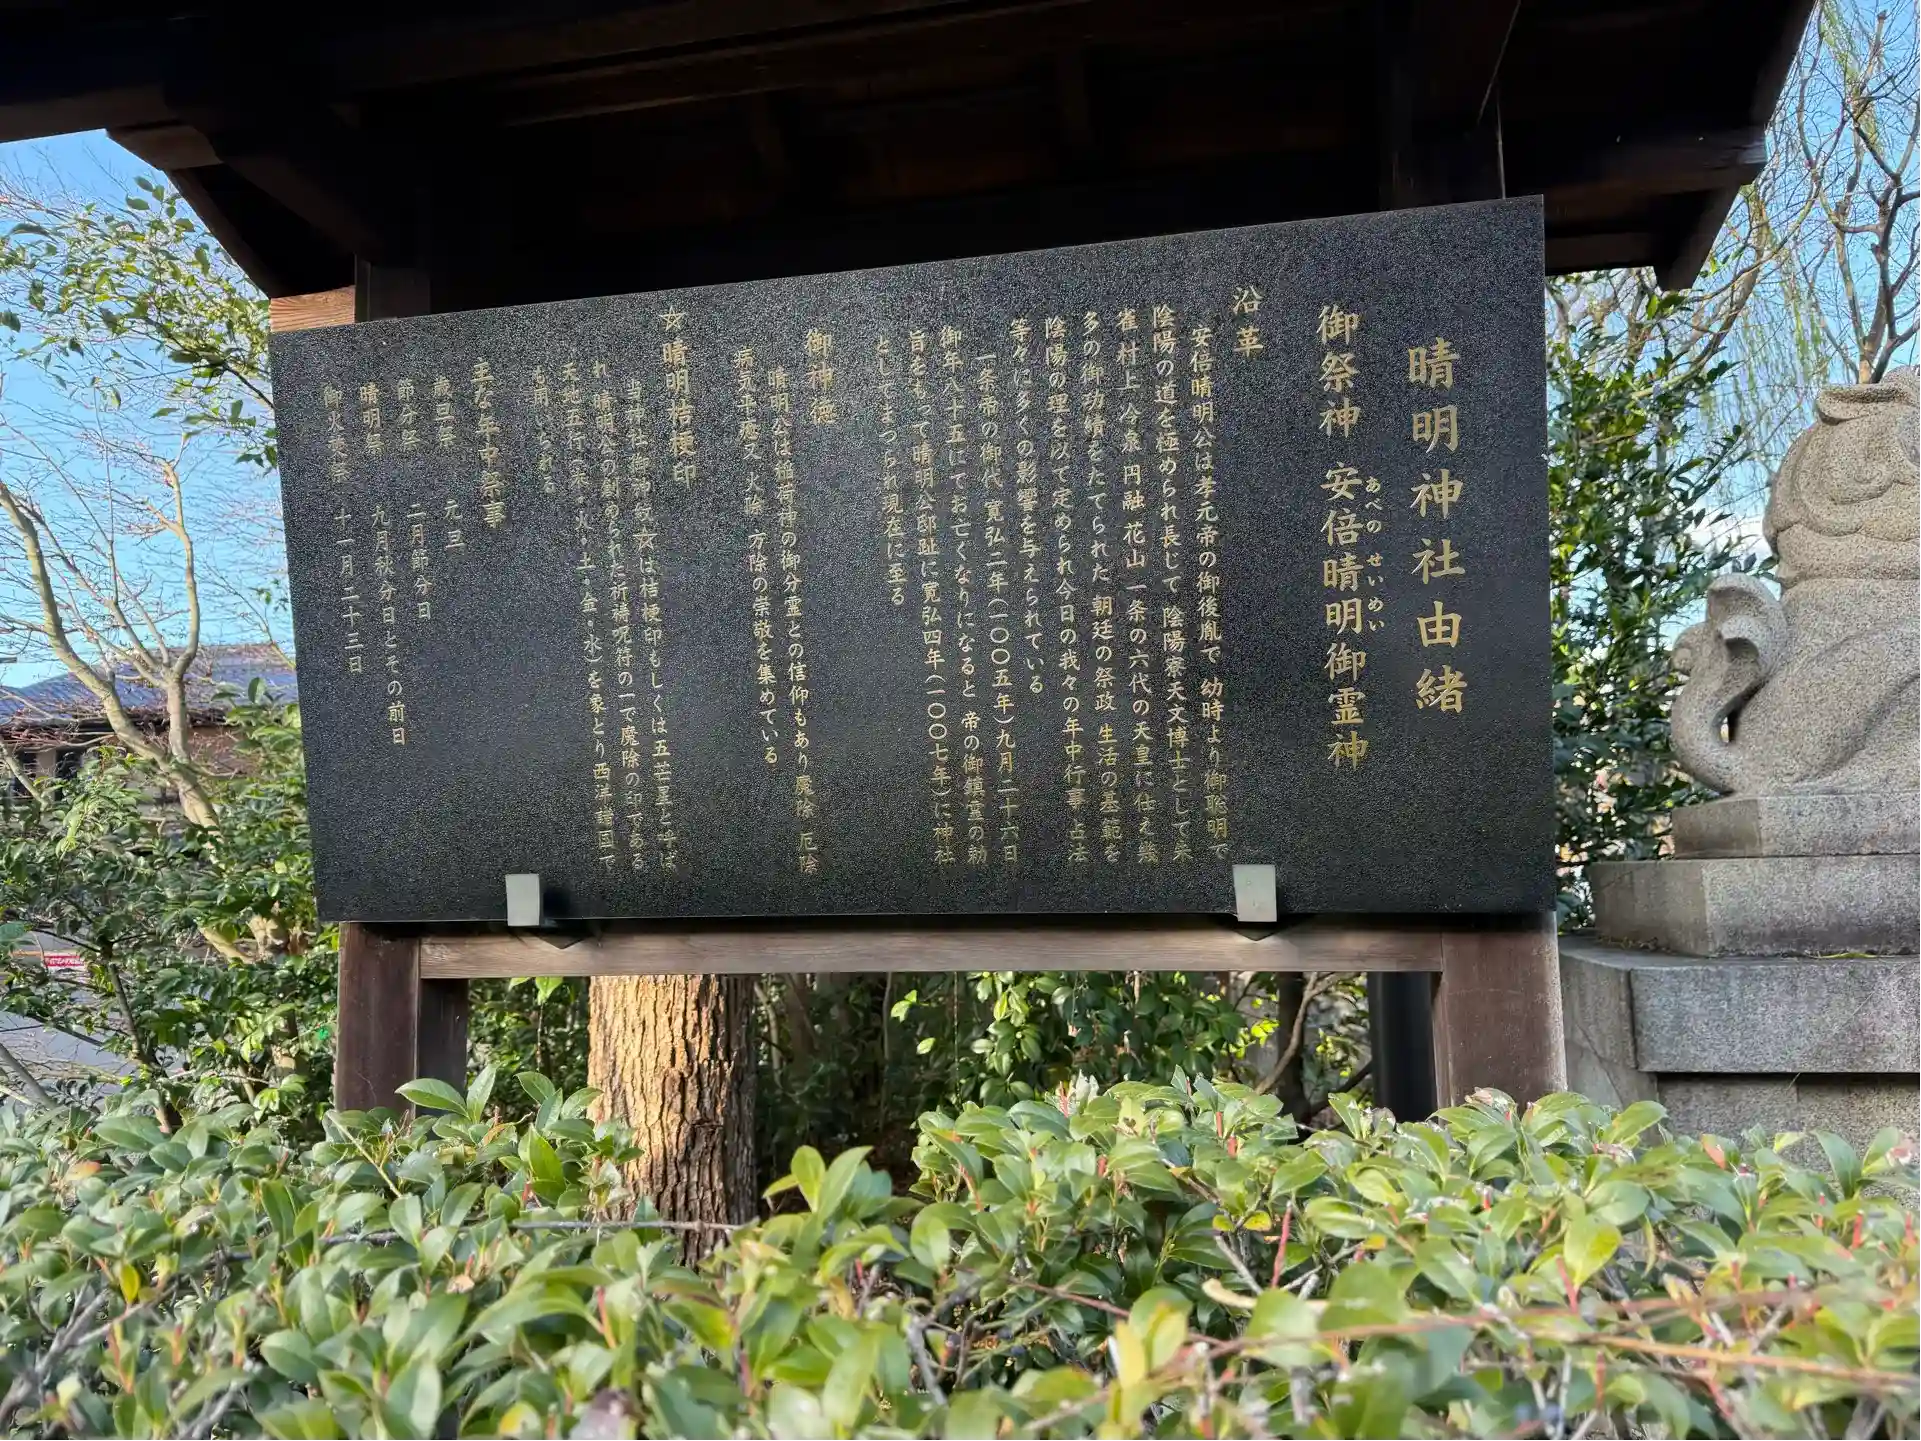 晴明神社由緒
御祭神 安倍晴明御霊神
あべの せいめい
沿革
安倍晴明公は孝元帝の御後胤で 幼時より御聡明で
陰陽の道を極められ長じて 陰陽寮天文博士として朱
雀村上 冷泉 円融 花山 一条の六代の天皇に仕え幾
多の御功績をたてられた 朝廷の祭政 生活の基範を
陰陽の理を以て定められ今日の我々の年中行事 占法
等々に多くの影響を与えられている
一条帝の御代 寛弘二年(一〇〇五年)九月二十六日
御年八十五にてお亡くなりになると 帝の御鎮霊の勅
旨をもって晴明公邸趾に寛弘四年(一〇〇七年)に神社
としてまつられ現在に至る
御神徳
晴明公は稲荷神の御分霊との信仰もあり魔除 厄除
病気平癒又 火除 方除の崇敬を集めている
☆晴明桔梗印
当神社御神紋☆は桔梗印もしくは五芒星と呼ば
れ 晴明公の創められた祈祷呪符の一で魔除の印である
天地五行(木・火・土・金・水)を象とり西洋諸国で
も用いられる
主な年中祭事
歳旦祭 元旦
節分祭 二月節分日
晴明祭 九月秋分日とその前日
御火焚祭 十一月二十三日